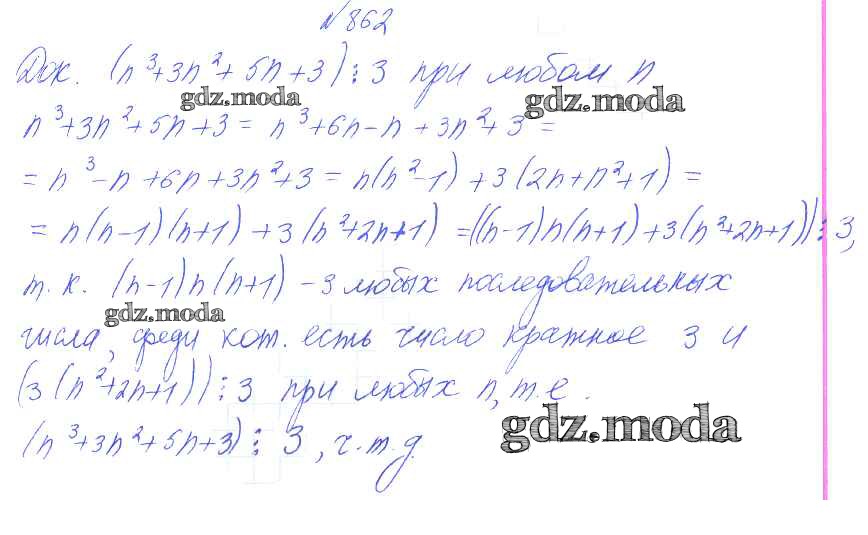 № 862
Док. (n³+3n²+5n+3)⋮3 при любом n
gdz.moda
gdz.moda
n³+3n²+5n+3 = n³+6n-n+3n²+3 =
= n³-n+6n+3n²+3 = n(n²-1)+3(2n+n²+1) =
= n(n-1)(n+1)+3(n²+2n+1) =((n-1)n(n+1)+3(n²+2n+1))⋮3,
т.к. (n-1)n(n+1) - 3 любых последовательных
gdz.moda
числа, среди кот. есть число кратное 3 и
(3(n²+2n+1))⋮3 при любых n, т.е.
gdz.moda
(n³+3n²+5n+3)⋮3, ч.т.д.